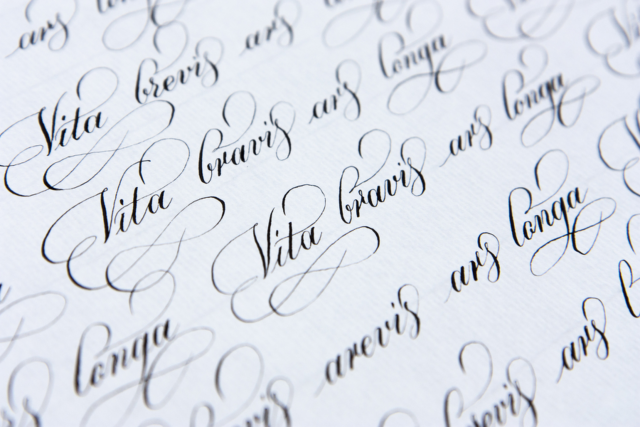 ars
Vita brevis ars
Vita bravis ars longa
longa Vita bravis ars longa
arevis ars longa
ars